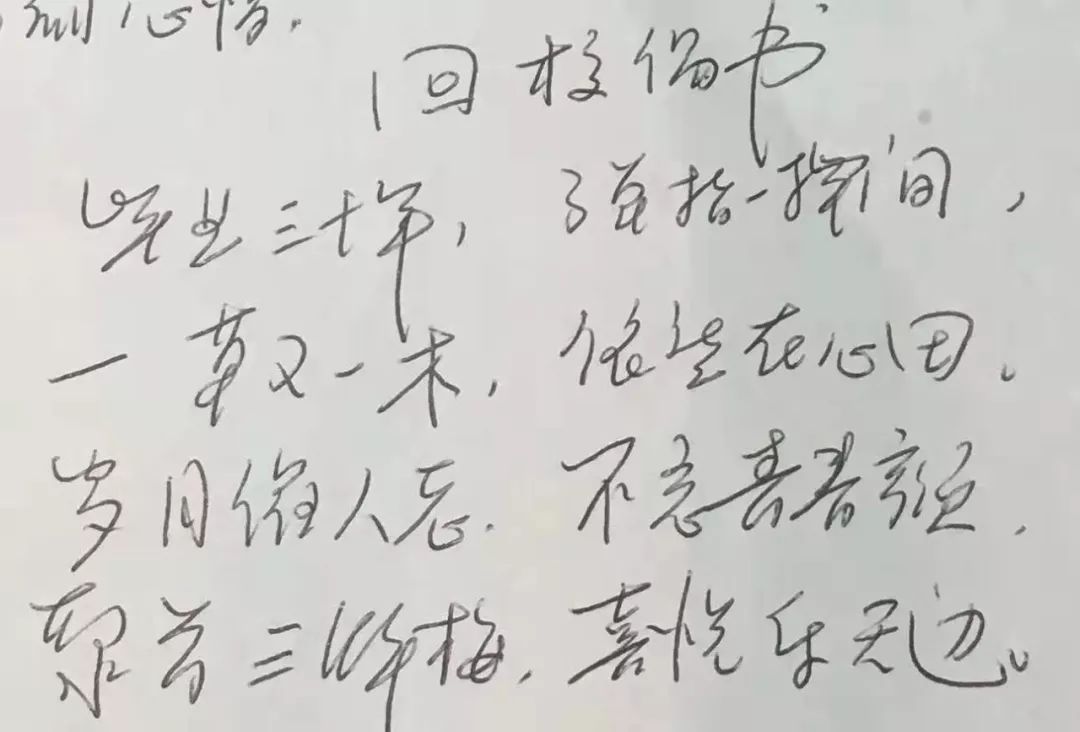 心情.
回校偶书
毕业三十年, 弹指一挥间,
一草又一木, 依在心田。
岁月催人老. 不忘青春颜.
首三梅, 喜悦乐无边。